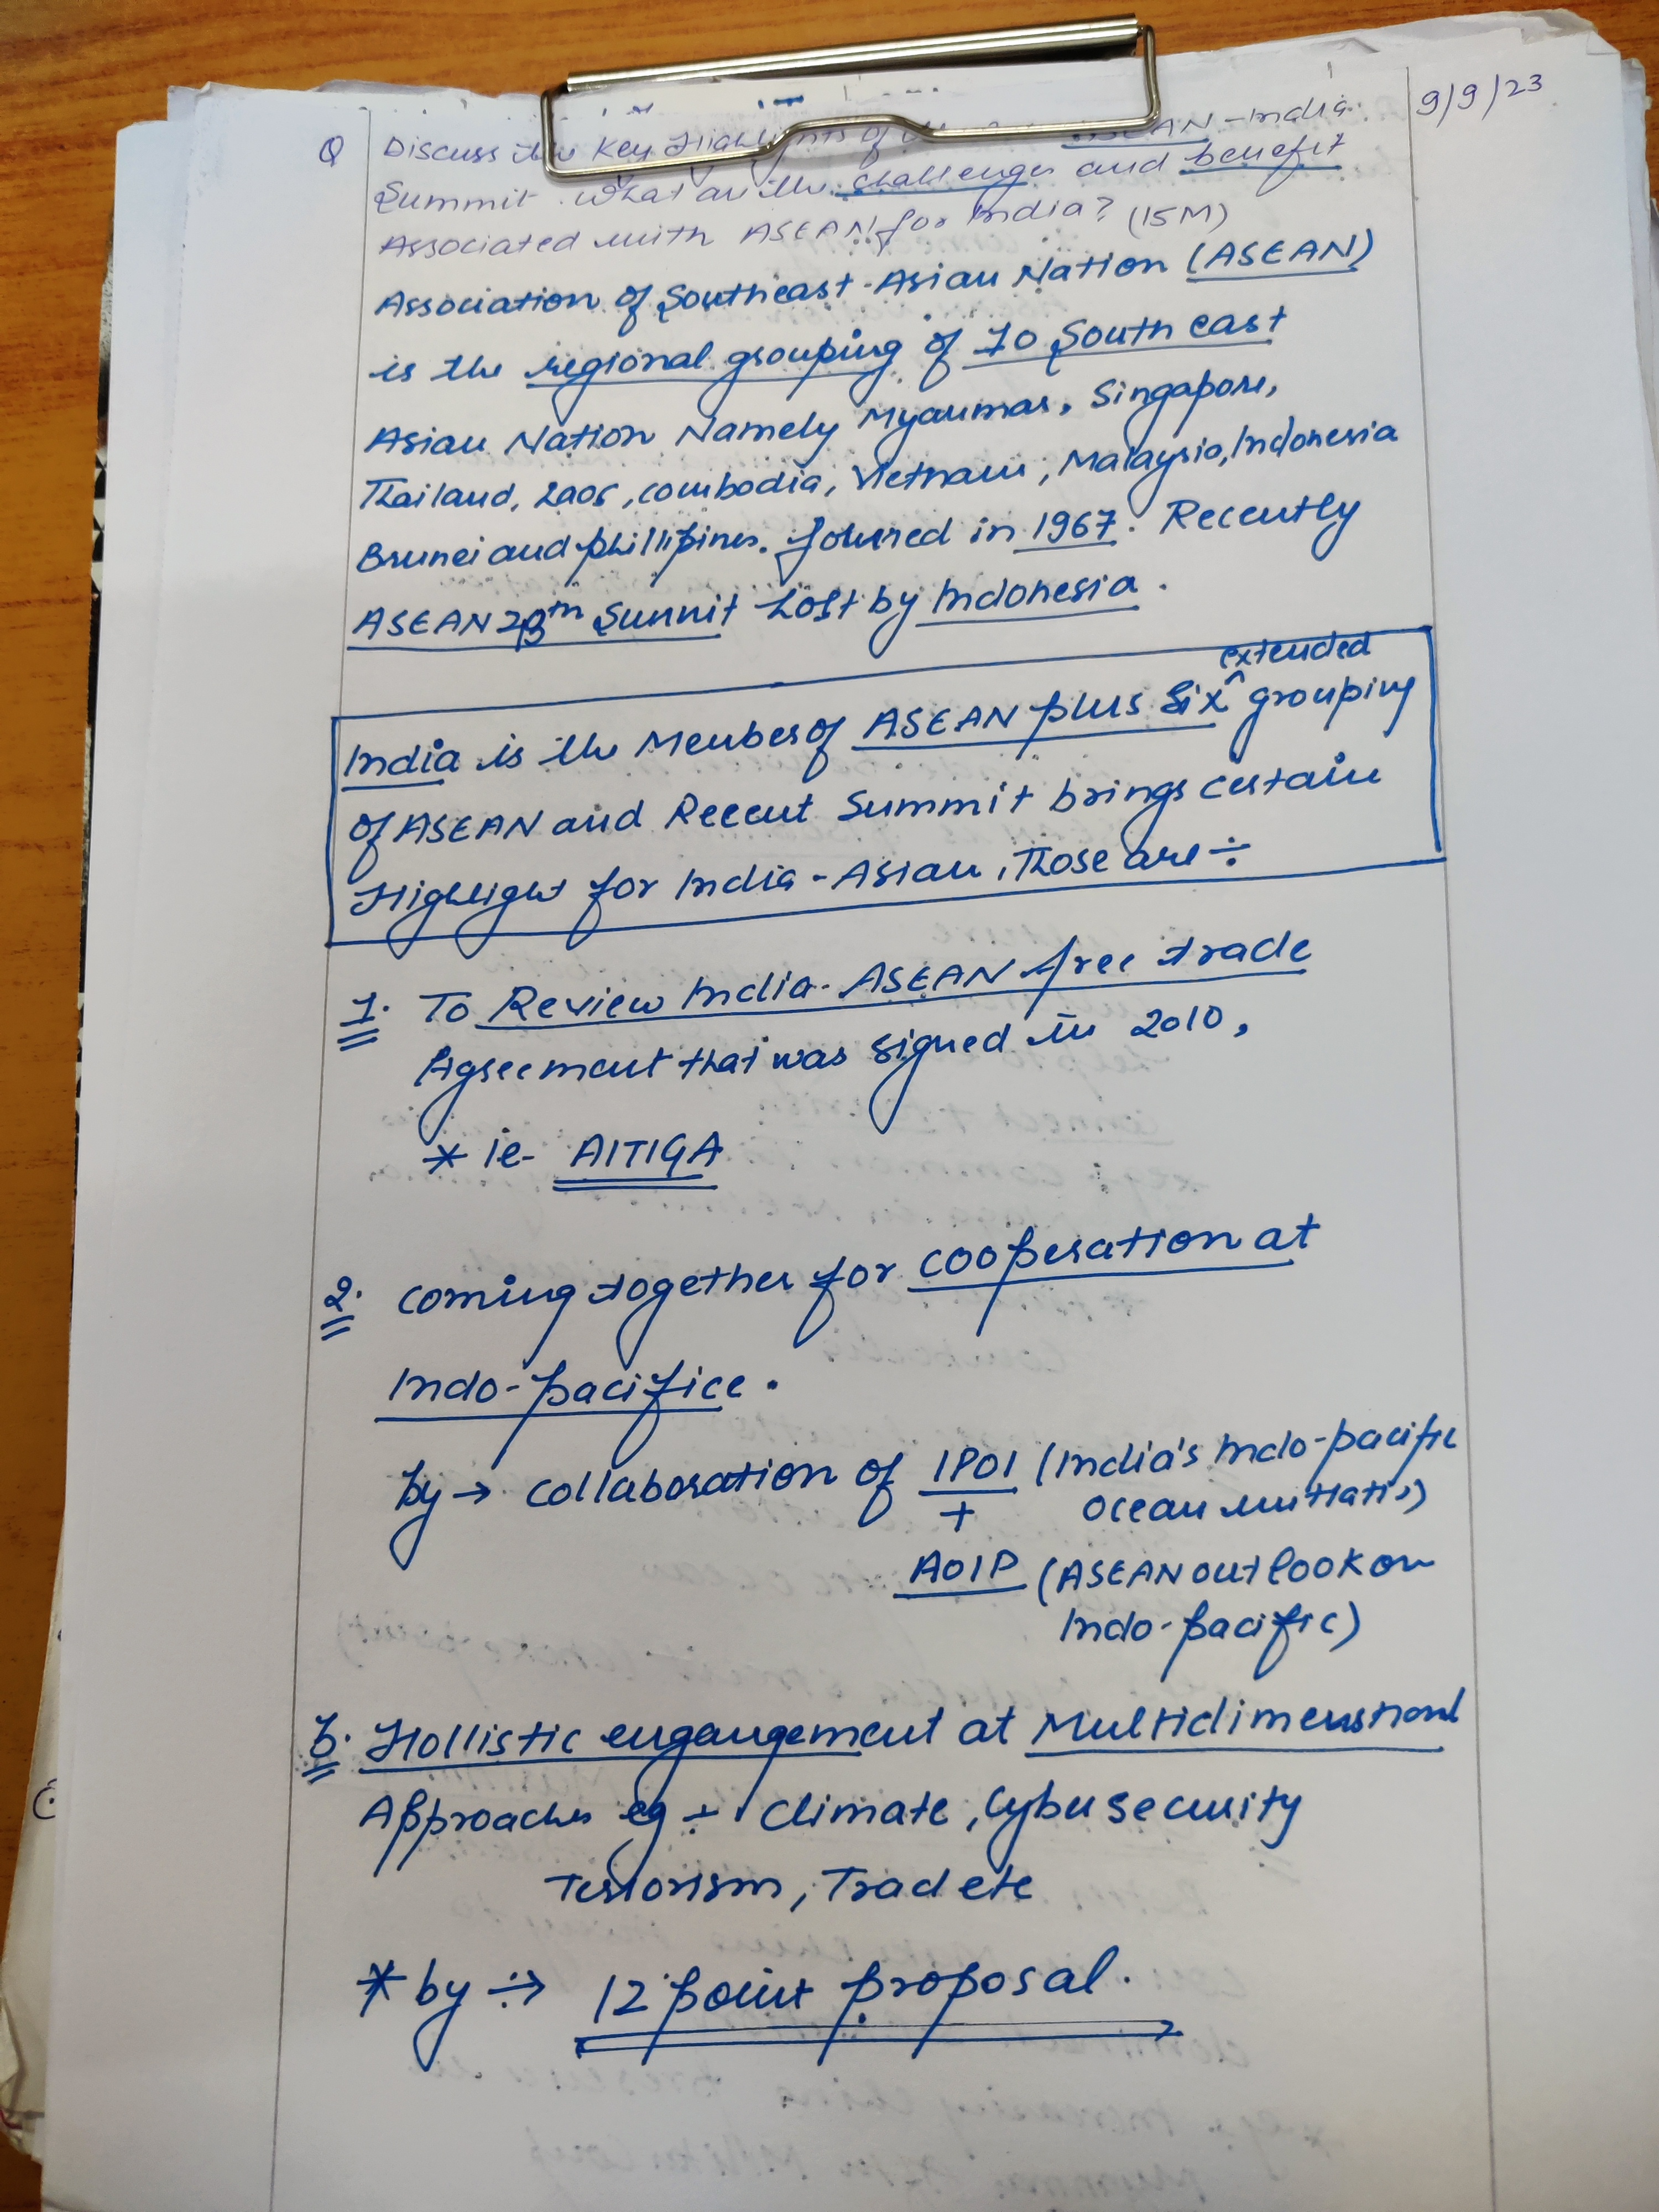 9/9/23
Q Discuss the Key Highlights of ASEAN-India
Summit. What are the challenges and benefit
Associated with ASEAN for India? (15M)
Association of Southeast-Asian Nation (ASEAN)
is the regional grouping of 10 South east
Asian Nation Namely Myanmar, Singapore,
Thailand, Laos, combodia, Vietnam, Malaysia, Indonesia
Brunei and phillipines. formed in 1967. Recently
ASEAN th Summit host by Indonesia.
extended
India is the Member of ASEAN plus Six ^ grouping
of ASEAN and Recent Summit brings certain
Highlight for India-Asian, Those are ÷
1. To Review India-ASEAN free trade
Agreement that was signed in 2010,
* ie- AITIGA
2. coming together for cooperation at
Indo-pacifice.
by → collaboration of IPOI (India's Indo-pacific
+ Ocean
AOIP (ASEAN outlook on
Indo-pacific)
3. Hollistic engangement at Multidimenstional
Approaches eg ÷ Climate, Cyber security
Terrorism, Trad etc
* by ÷→ 12 point proposal.